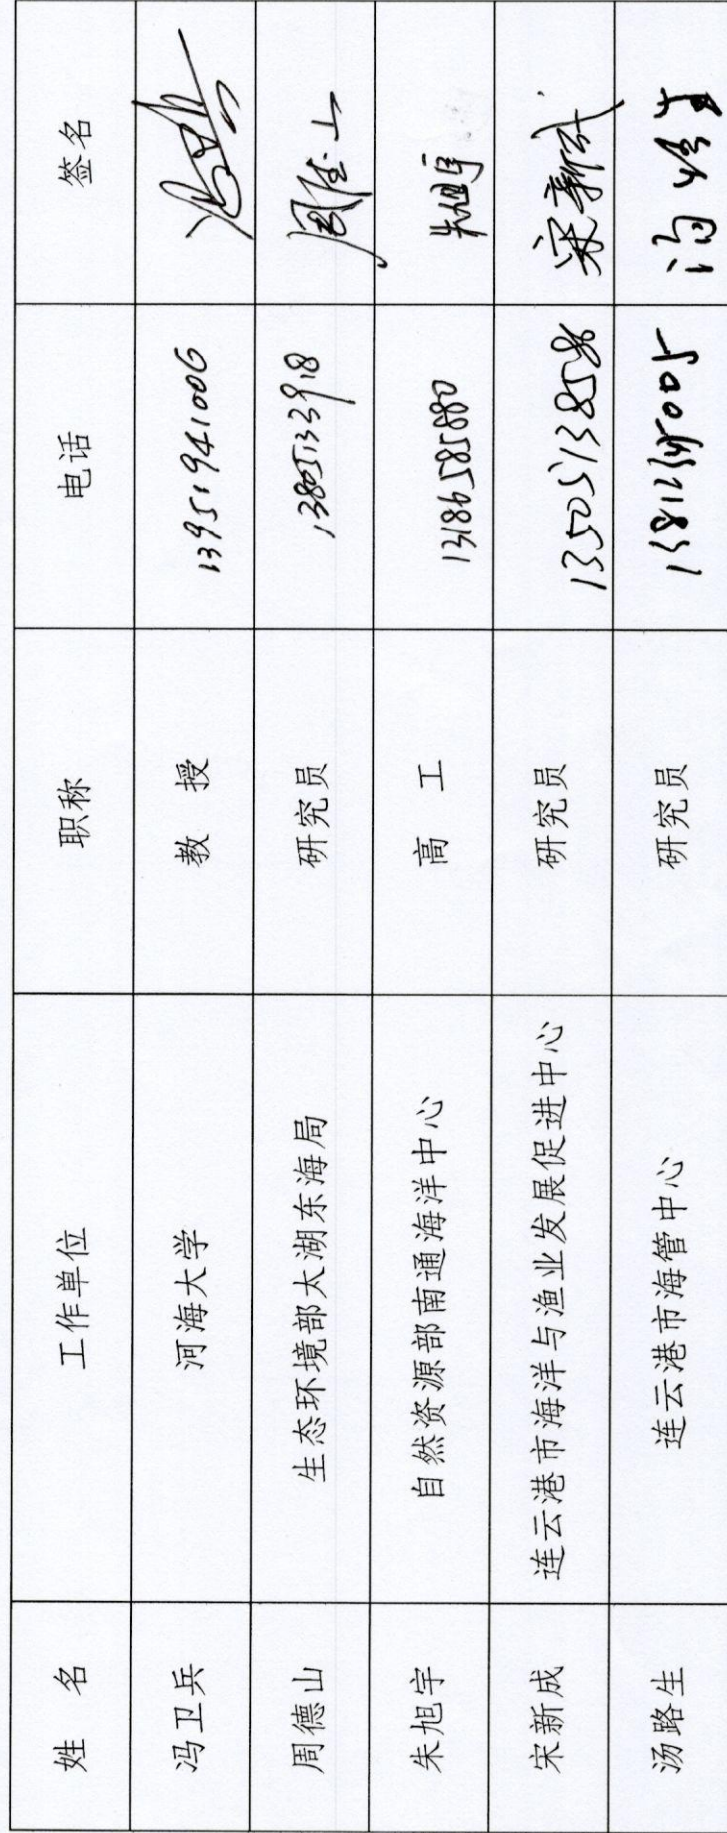 姓 名 工作单位 职称 电话 签名
冯卫兵 河海大学 教 授 13951941006
周德山 生态环境部太湖东海局 研究员 13805133918 周德山
朱旭宇 自然资源部南通海洋中心 高 工 13186585880 朱旭宇
宋新成 连云港市海洋与渔业发展促进中心 研究员 13505138586 宋新成
汤路生 连云港市海管中心 研究员